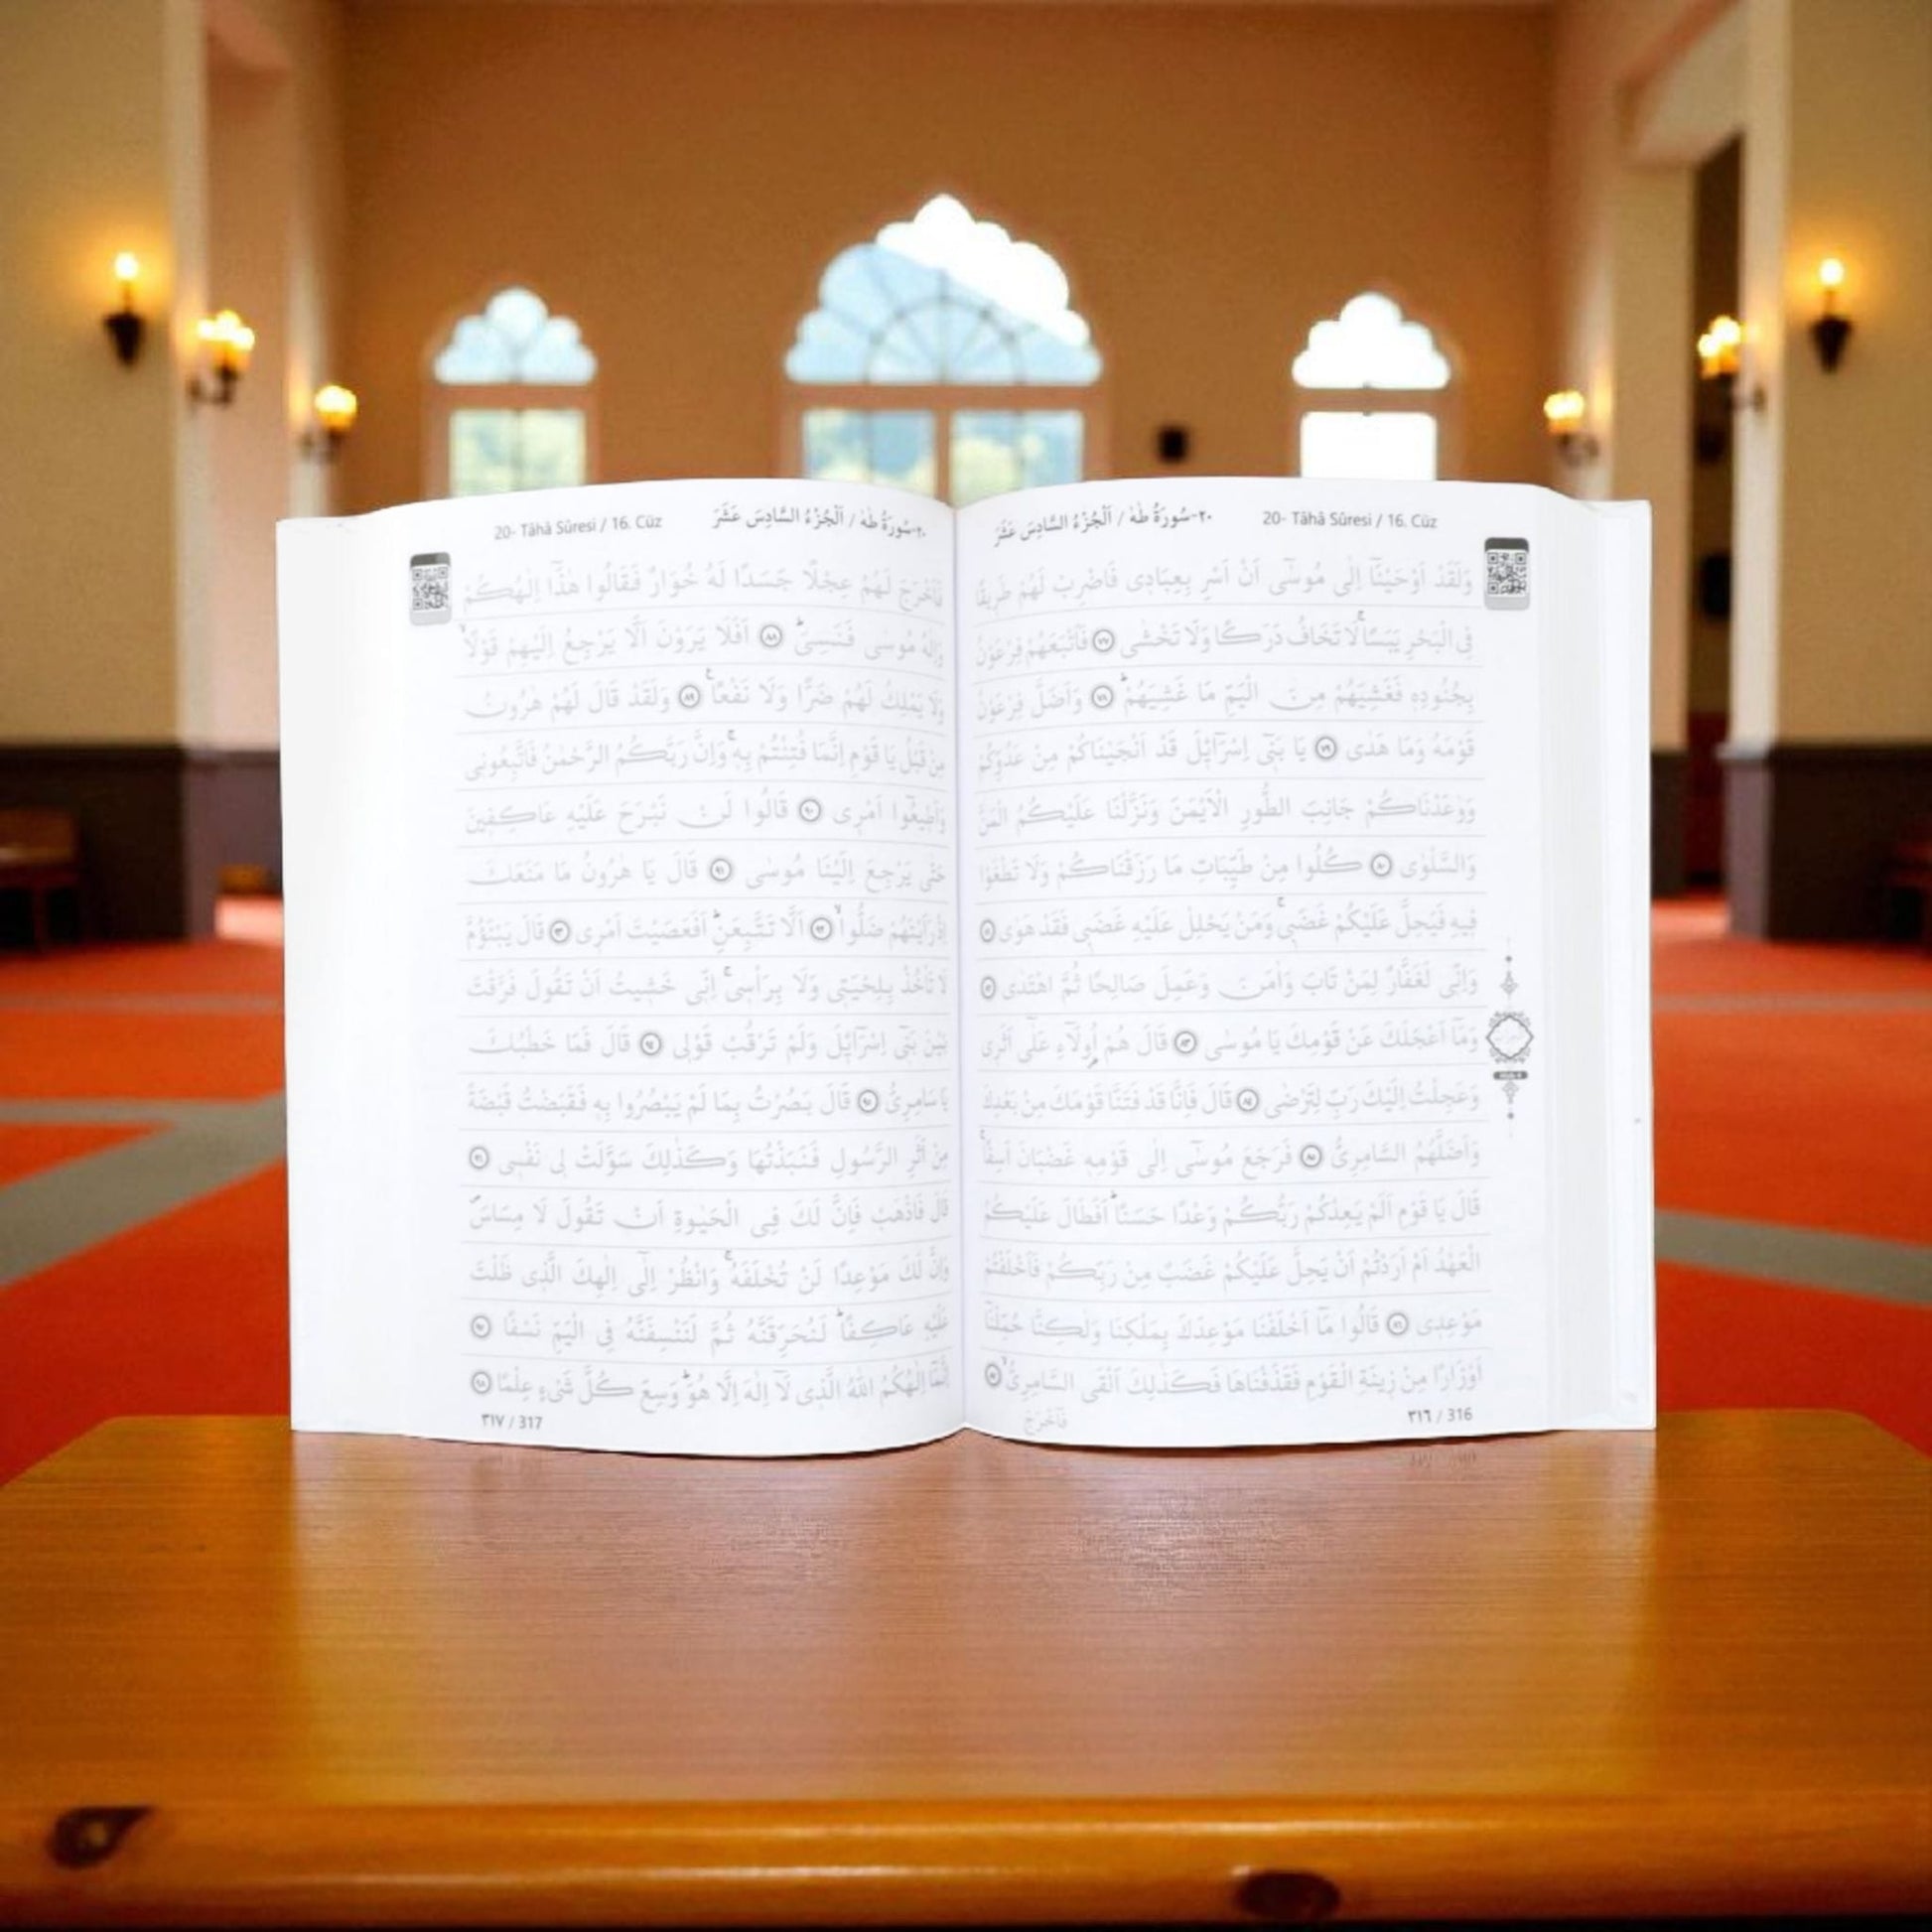 ٢٠-سُورَةُ طٰهٰ / اَلْجُزْءُ السَّادِسَ عَشَرَ
20- Tâhâ Sûresi / 16. Cüz
وَلَقَدْ اَوْحَيْنَٓا اِلٰى مُوسٰٓى اَنْ اَسْرِ بِعِبَادٖى فَاضْرِبْ لَهُمْ طَرٖيقًا
فِى الْبَحْرِ يَبَسًاۚ لَا تَخَافُ دَرَكًا وَلَا تَخْشٰى ٧٧ فَاَتْبَعَهُمْ فِرْعَوْنُ
بِجُنُودِهٖ فَغَشِيَهُمْ مِنَ الْيَمِّ مَا غَشِيَهُمْؕ ٧٨ وَاَضَلَّ فِرْعَوْنُ
قَوْمَهُ وَمَا هَدٰى ٧٩ يَا بَنٖٓى اِسْرَٓائٖلَ قَدْ اَنْجَيْنَاكُمْ مِنْ عَدُوِّكُمْ
وَوٰعَدْنَاكُمْ جَانِبَ الطُّورِ الْاَيْمَنَ وَنَزَّلْنَا عَلَيْكُمُ الْمَنَّ
وَالسَّلْوٰى ٨٠ كُلُوا مِنْ طَيِّبَاتِ مَا رَزَقْنَاكُمْ وَلَا تَطْغَوْا
فٖيهِ فَيَحِلَّ عَلَيْكُمْ غَضَبٖىۚ وَمَنْ يَحْلِلْ عَلَيْهِ غَضَبٖى فَقَدْ هَوٰى ٨١
وَاِنّٖى لَغَفَّارٌ لِمَنْ تَابَ وَاٰمَنَ وَعَمِلَ صَالِحًا ثُمَّ اهْتَدٰى ٨٢
وَمَٓا اَعْجَلَكَ عَنْ قَوْمِكَ يَا مُوسٰى ٨٣ قَالَ هُمْ اُو۬لَٓاءِ عَلٰٓى اَثَرٖى
وَعَجِلْتُ اِلَيْكَ رَبِّ لِتَرْضٰى ٨٤ قَالَ فَاِنَّا قَدْ فَتَنَّا قَوْمَكَ مِنْ بَعْدِكَ
وَاَضَلَّهُمُ السَّامِرِىُّ ٨٥ فَرَجَعَ مُوسٰٓى اِلٰى قَوْمِهٖ غَضْبَانَ اَسِفًاۚ
قَالَ يَا قَوْمِ اَلَمْ يَعِدْكُمْ رَبُّكُمْ وَعْدًا حَسَنًاؕ اَفَطَالَ عَلَيْكُمُ
الْعَهْدُ اَمْ اَرَدْتُمْ اَنْ يَحِلَّ عَلَيْكُمْ غَضَبٌ مِنْ رَبِّكُمْ فَاَخْلَفْتُمْ
مَوْعِدٖى ٨٦ قَالُوا مَٓا اَخْلَفْنَا مَوْعِدَكَ بِمَلْكِنَا وَلٰكِنَّا حُمِّلْنَٓا
اَوْزَارًا مِنْ زٖينَةِ الْقَوْمِ فَقَذَفْنَاهَا فَكَذٰلِكَ اَلْقَى السَّامِرِىُّۙ ٨٧
٣١٦ / 316
فَاَخْرَجَ
20- Tâhâ Sûresi / 16. Cüz
٢٠-سُورَةُ طٰهٰ / اَلْجُزْءُ السَّادِسَ عَشَرَ
فَاَخْرَجَ لَهُمْ عِجْلًا جَسَدًا لَهُ خُوَارٌ فَقَالُوا هٰذَٓا اِلٰهُكُمْ
وَاِلٰهُ مُوسٰى فَنَسِىَؕ ٨٨ اَفَلَا يَرَوْنَ اَلَّا يَرْجِعُ اِلَيْهِمْ قَوْلًاۙ
وَلَا يَمْلِكُ لَهُمْ ضَرًّا وَلَا نَفْعًاۚ ٨٩ وَلَقَدْ قَالَ لَهُمْ هٰرُونُ
مِنْ قَبْلُ يَا قَوْمِ اِنَّمَا فُتِنْتُمْ بِهٖۚ وَاِنَّ رَبَّكُمُ الرَّحْمٰنُ فَاتَّبِعُونٖى
وَاَطٖيعُٓوا اَمْرٖى ٩٠ قَالُوا لَنْ نَبْرَحَ عَلَيْهِ عَاكِفٖينَ
حَتّٰى يَرْجِعَ اِلَيْنَا مُوسٰى ٩١ قَالَ يَا هٰرُونُ مَا مَنَعَكَ
اِذْ رَاَيْتَهُمْ ضَلُّٓواۙ ٩٢ اَلَّا تَتَّبِعَنِؕ اَفَعَصَيْتَ اَمْرٖى ٩٣ قَالَ يَبْنَؤُمَّ
لَا تَأْخُذْ بِلِحْيَتٖى وَلَا بِرَأْسٖىۚ اِنّٖى خَشٖيتُ اَنْ تَقُولَ فَرَّقْتَ
بَيْنَ بَنٖٓى اِسْرَٓائٖلَ وَلَمْ تَرْقُبْ قَوْلٖى ٩٤ قَالَ فَمَا خَطْبُكَ
يَا سَامِرِىُّ ٩٥ قَالَ بَصُرْتُ بِمَا لَمْ يَبْصُرُوا بِهٖ فَقَبَضْتُ قَبْضَةً
مِنْ اَثَرِ الرَّسُولِ فَنَبَذْتُهَا وَكَذٰلِكَ سَوَّلَتْ لٖى نَفْسٖى ٩٦
قَالَ فَاذْهَبْ فَاِنَّ لَكَ فِى الْحَيٰوةِ اَنْ تَقُولَ لَا مِسَاسَ
وَاِنَّ لَكَ مَوْعِدًا لَنْ تُخْلَفَهُۚ وَانْظُرْ اِلٰٓى اِلٰهِكَ الَّذٖى ظَلْتَ
عَلَيْهِ عَاكِفًاؕ لَنُحَرِّقَنَّهُ ثُمَّ لَنَنْسِفَنَّهُ فِى الْيَمِّ نَسْفًا ٩٧
اِنَّمَٓا اِلٰهُكُمُ اللّٰهُ الَّذٖى لَٓا اِلٰهَ اِلَّا هُوَؕ وَسِعَ كُلَّ شَىْءٍ عِلْمًا ٩٨
٣١٧ / 317